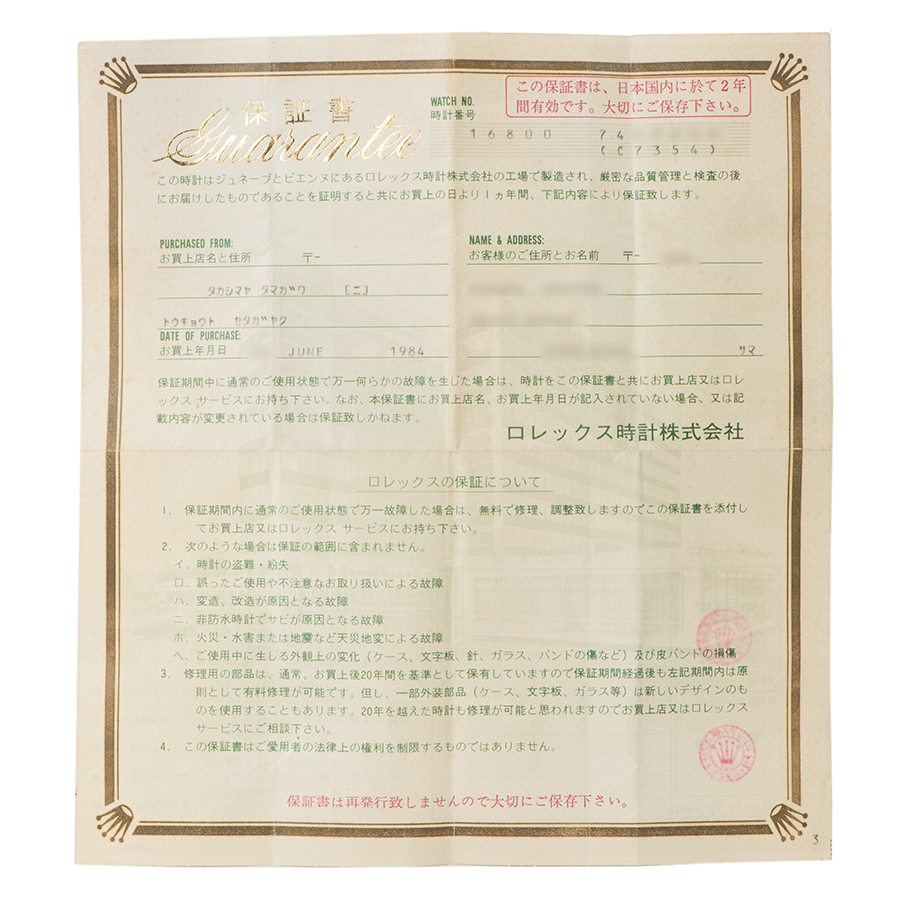 保証書
Guarantee
WATCH NO.
時計番号
この保証書は、日本国内に於て2年
間有効です。大切にご保存下さい。
16800 74
(C7354)
この時計はジュネーブとビエンヌにあるロレックス時計株式会社の工場で製造され、厳密な品質管理と検査の後
にお届けしたものであることを証明すると共にお買上の日より1ヵ年間、下記内容により保証致します。
PURCHASED FROM:
お買上店名と住所 〒-
タカシマヤ タマガワ [ニ]
トウキョウト セタガヤク
NAME & ADDRESS:
お客様のご住所とお名前 〒-
DATE OF PURCHASE:
お買上年月日 JUNE 1984
サマ
保証期間中に通常のご使用状態で万一何らかの故障を生じた場合は、時計をこの保証書と共にお買上店又はロレ
ックス サービスにお持ち下さい。なお、本保証書にお買上店名、お買上年月日が記入されていない場合、又は記
載内容が変更されている場合は保証致しかねます。
ロレックス時計株式会社
ロレックスの保証について
1. 保証期間内に通常のご使用状態で万一故障した場合は、無料で修理、調整致しますのでこの保証書を添付し
てお買上店又はロレックス サービスにお持ち下さい。
2. 次のような場合は保証の範囲に含まれません。
イ. 時計の盗難・紛失
ロ. 誤ったご使用や不注意なお取り扱いによる故障
ハ. 変造、改造が原因となる故障
ニ. 非防水時計でサビが原因となる故障
ホ. 火災・水害または地震など天災地変による故障
ヘ. ご使用中に生じる外観上の変化(ケース、文字板、針、ガラス、バンドの傷など)及び皮バンドの損傷
3. 修理用の部品は、通常、お買上後20年間を基準として保有していますので保証期間経過後も左記期間内は原
則として有料修理が可能です。但し、一部外装部品(ケース、文字板、ガラス等)は新しいデザインのも
のを使用することもあります。20年を越えた時計も修理が可能と思われますのでお買上店又はロレックス
サービスにご相談下さい。
4. この保証書はご愛用者の法律上の権利を制限するものではありません。
保証書は再発行致しませんので大切にご保存下さい。
3